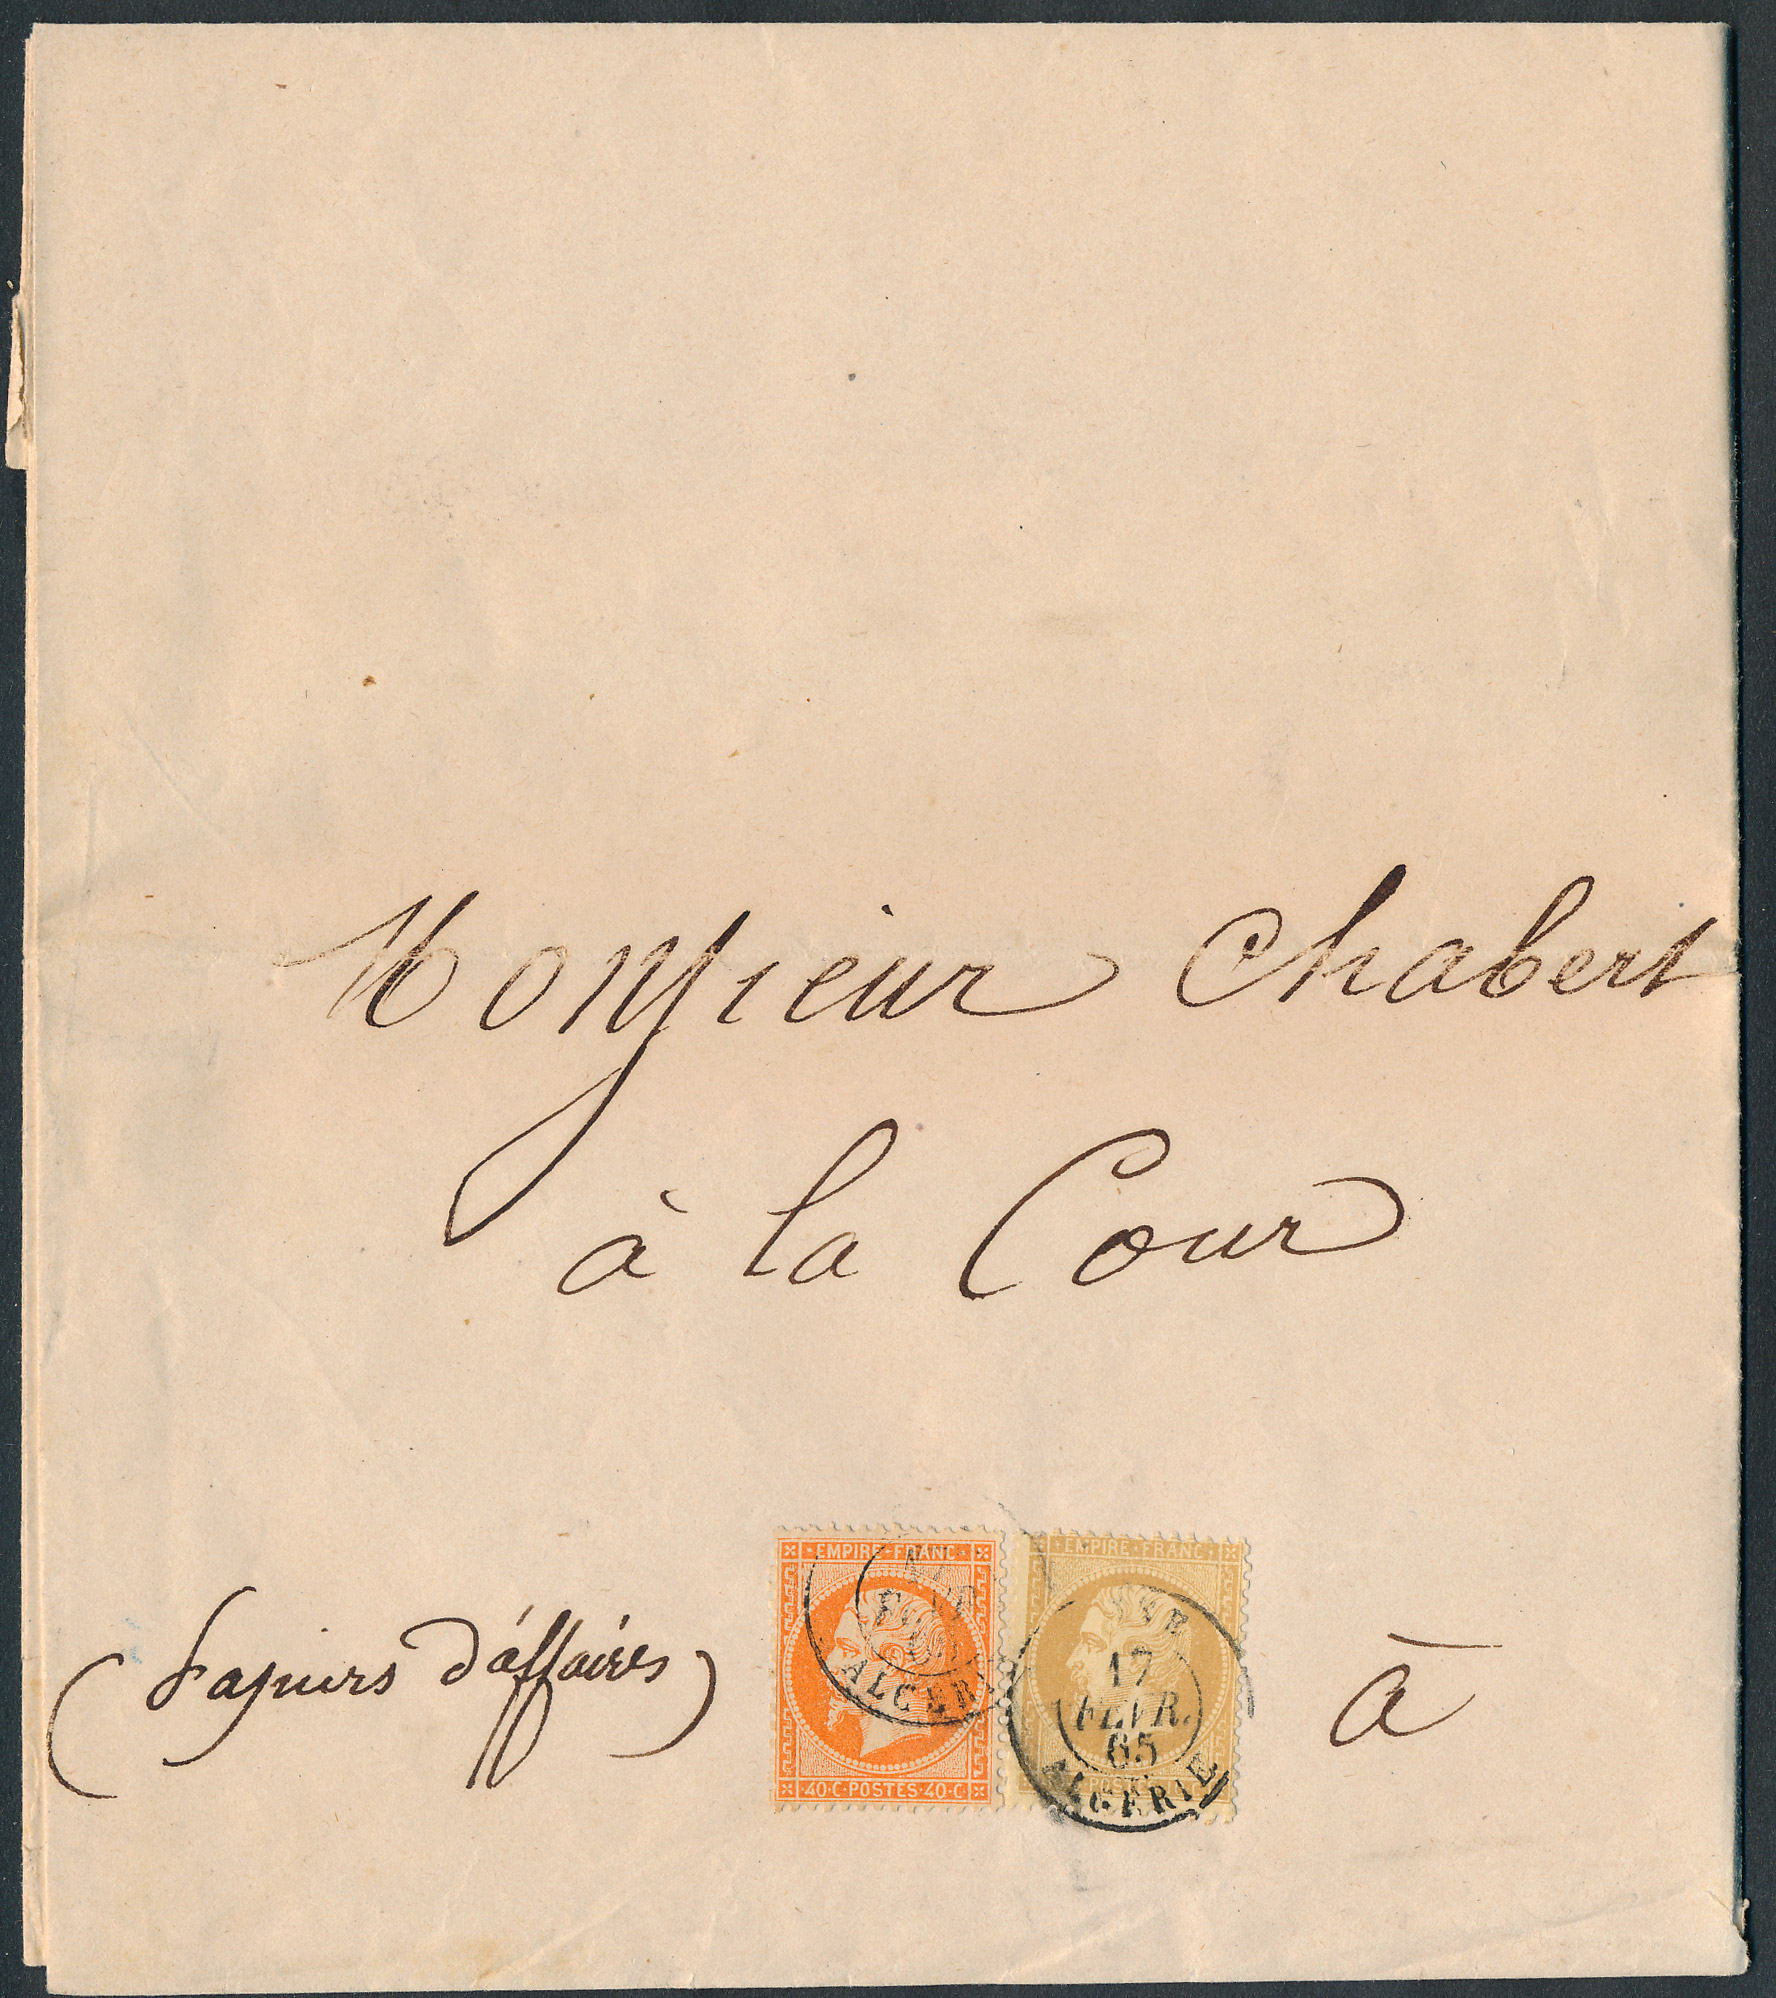 Monsieur Chabert
à la Cour
(Papiers d'affaires)
à
EMPIRE FRANC
40 C POSTES 40 C
ALGER
EMPIRE FRANC
17
FEVR.
65
ALGERIE
POSTES